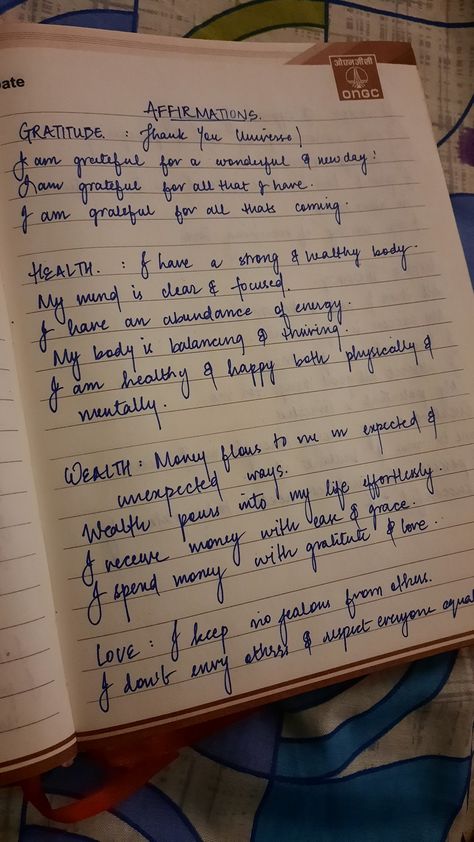 Date
ओएनजीसी
ONGC
AFFIRMATIONS.
GRATITUDE. : Thank You Universe!
I am grateful for a wonderful & new day!
I am grateful for all that I have.
I am grateful for all thats coming.
HEALTH. : I have a strong & healthy body.
My mind is clear & focused.
I have an abundance of energy.
My body is balancing & thriving.
I am healthy & happy both physically &
mentally.
WEALTH : Money flows to me in expected &
unexpected ways.
Wealth pours into my life effortlessly.
I receive money with ease & grace.
I spend money with gratitude & love.
LOVE : I keep no jealous from others.
I don't envy others & respect everyone equal